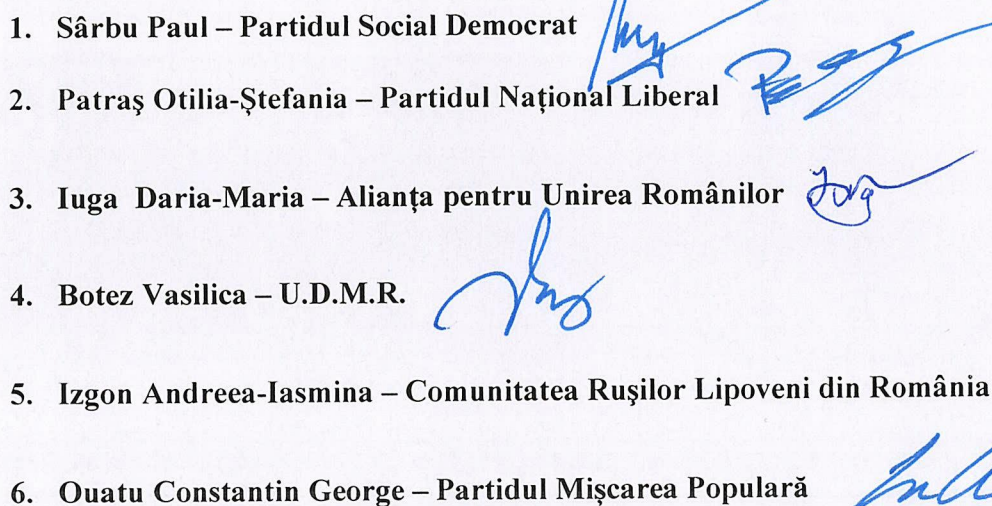 1. Sârbu Paul – Partidul Social Democrat
2. Patraş Otilia-Ștefania – Partidul Național Liberal
3. Iuga Daria-Maria – Alianța pentru Unirea Românilor
4. Botez Vasilica – U.D.M.R.
5. Izgon Andreea-Iasmina – Comunitatea Ruşilor Lipoveni din România
6. Ouatu Constantin George – Partidul Mișcarea Populară